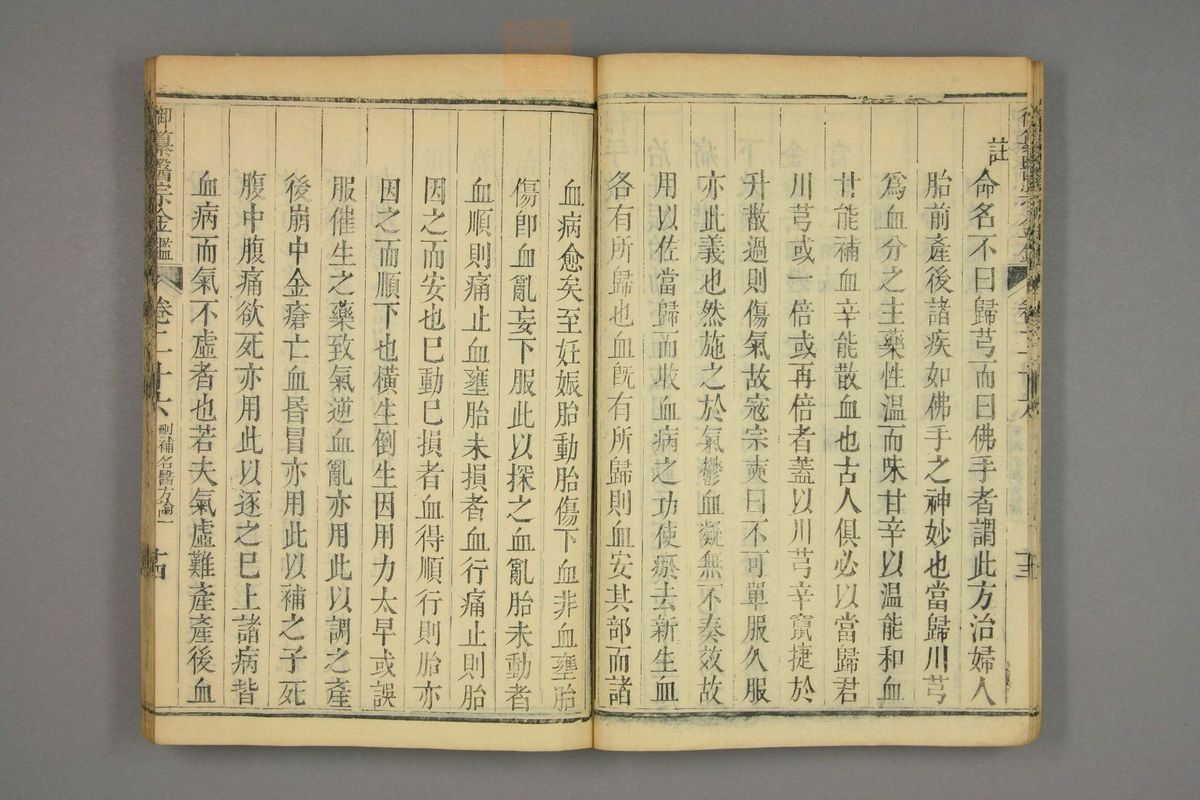 註
命名不曰歸芎而曰佛手者謂此方治婦人
胎前產後諸疾如佛手之神妙也當歸川芎
爲血分之主藥性溫而味甘辛以溫能和血
甘能補血辛能散血也古人俱必以當歸君
川芎或一倍或再倍者蓋以川芎辛竄捷於
升散過則傷氣故寇宗奭曰不可單服久服
亦此義也然施之於氣鬱血凝無不奏效故
用以佐當歸而收血病之功使瘀去新生血
各有所歸也血旣有所歸則血安其部而諸
血病愈矣至妊娠胎動胎傷下血非血壅胎
傷卽血亂妄下服此以探之血亂胎未動者
血順則痛止血壅胎未損者血行痛止則胎
因之而安也已動已損者血得順行則胎亦
因之而順下也橫生倒生因用力太早或誤
服催生之藥致氣逆血亂亦用此以調之產
後崩中金瘡亡血昏冒亦用此以補之子死
腹中腹痛欲死亦用此以逐之已上諸病皆
血病而氣不虛者也若夫氣虛難產產後血
御纂醫宗金鑑 卷二十六 刪補名醫方論一 十四